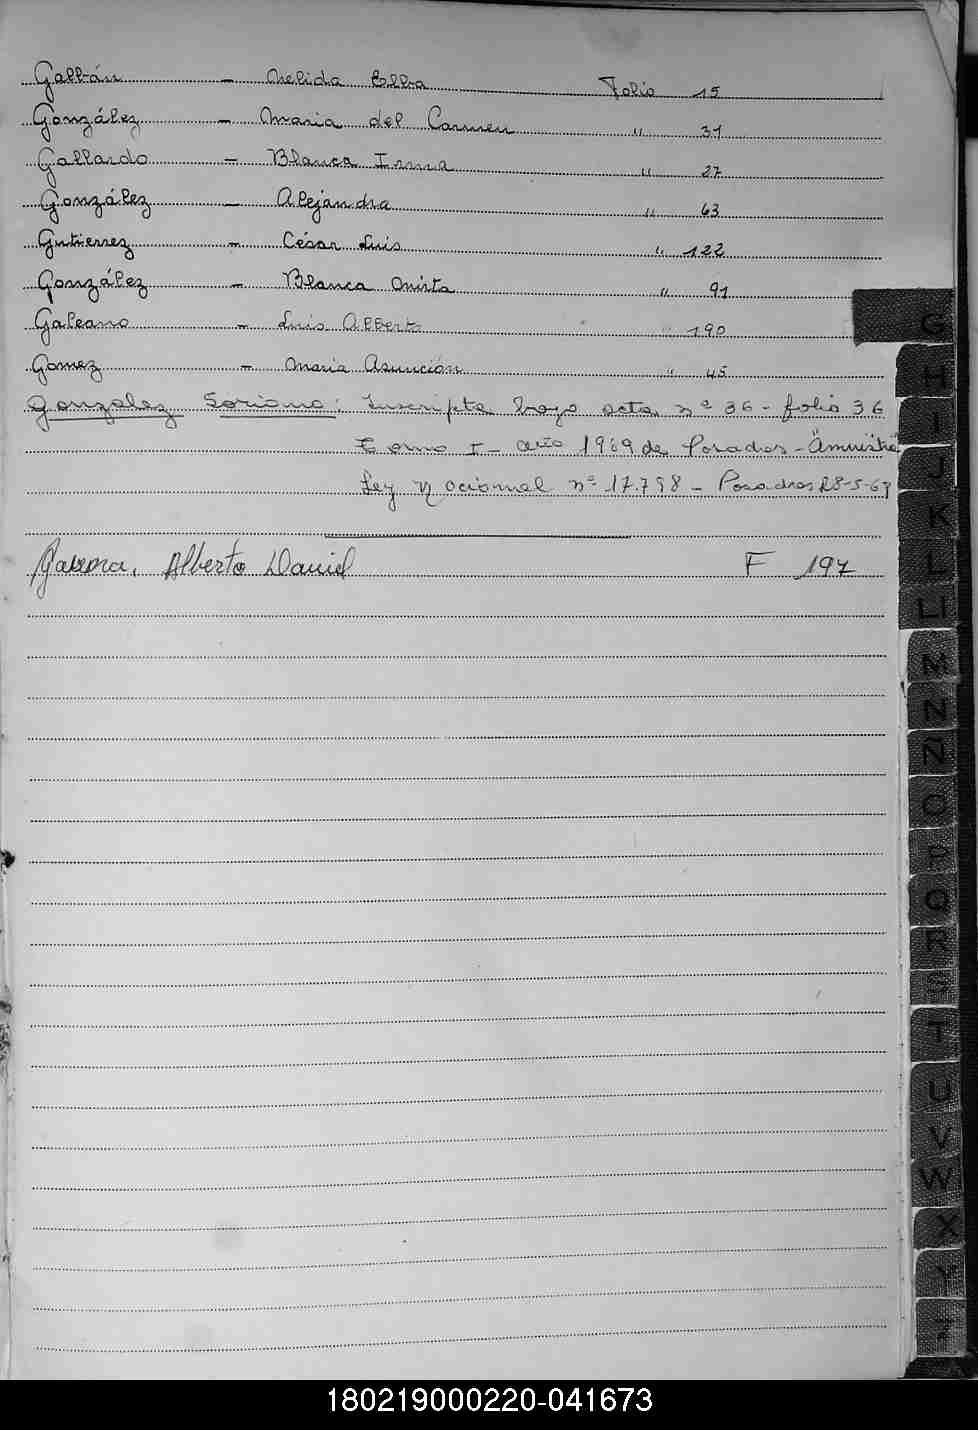 Galbán - Nelida Elba Folio 15
González - Maria del Carmen " 31
Gallardo - Blanca Irma " 27
González - Alejandra " 63
Gutierrez - César Luis " 122
González - Blanca Mirta " 91
Galeano - Luis Alberto " 190
Gomez - Maria Asunción " 45
Gonzalez Soriano: Inscripta bajo acta nº 36 - folio 36
Tomo I - año 1969 de Posadas - "Amnistia"
Ley Nacional nº 17.798 - Posadas 28-5-69
Alberto Daniel F 197
G
H
I
J
K
L
Ll
M
N
Ñ
O
P
Q
R
S
T
U
V
W
X
Y
Z
180219000220-041673